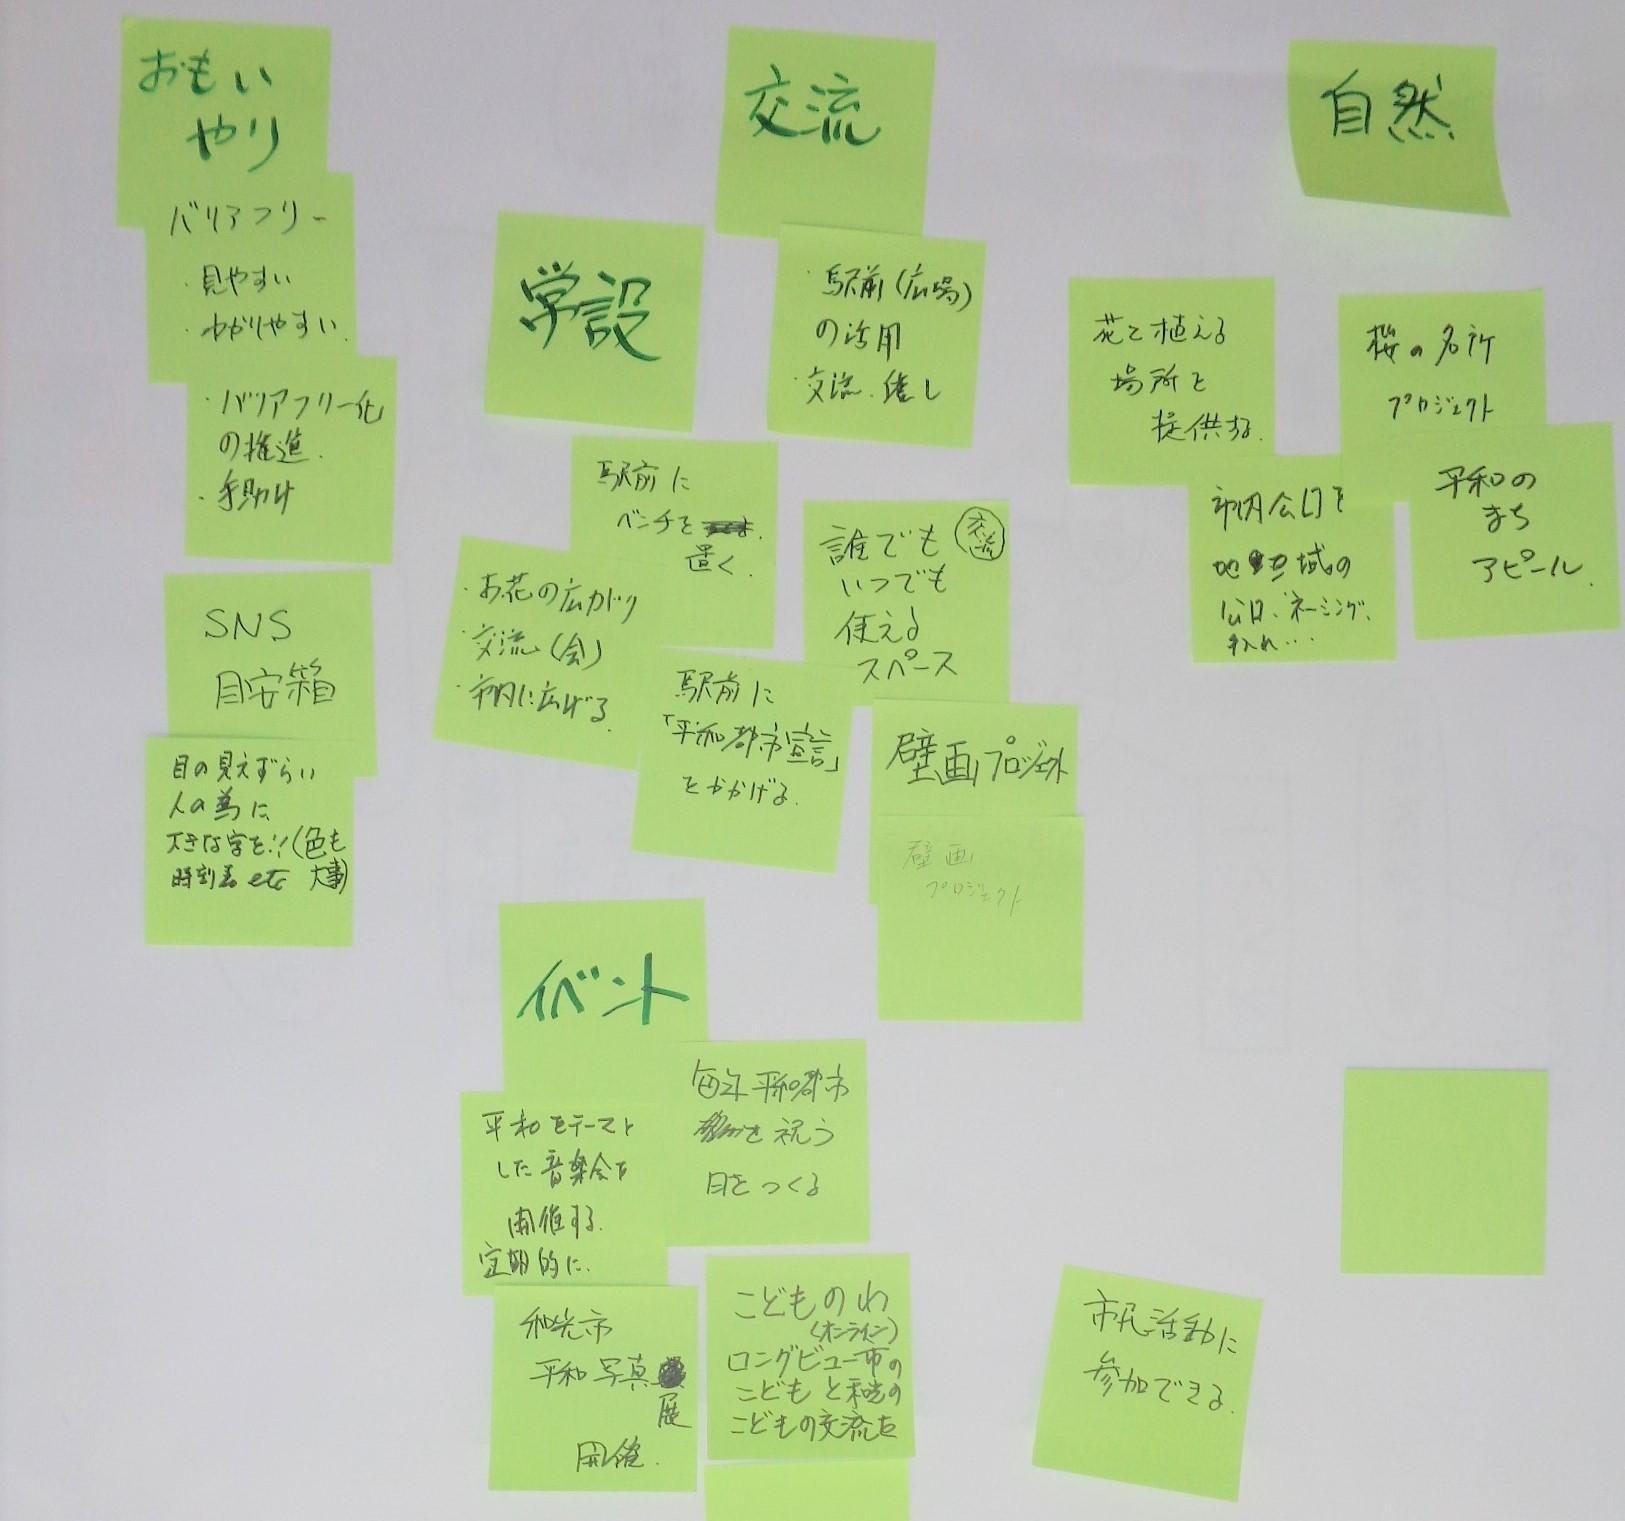 おもい
やり
バリアフリー
・見やすい
・わかりやすい
・バリアフリー化
の推進.
・手助け
SNS
目安箱
目の見えずらい
人の為に
大きな字を!!(色も
時刻表 etc 大事)
交流
学設
・駅前(広場)
の活用
・交流.催し
駅前に
ベンチを
置く.
・お花の広がり
・交流(会)
・市内に広げる
誰でも 交流
いつでも
使える
スペース
駅前に
「平和都市宣言」
をかかげる.
壁画プロジェクト
壁画
プロジェクト
自然
花を植える
場所を
提供する.
桜の名所
プロジェクト
市内公園を
地域の
ネーミング、
手入れ…
平和の
まち
アピール.
イベント
平和をテーマと
した音楽会を
開催する.
定期的に.
毎年平和都市
を祝う
日をつくる
和光市
平和写真
展
開催.
こどものわ
(オンライン)
ロングビュー市の
こどもと和光の
こどもの交流を
市民活動に
参加できる.